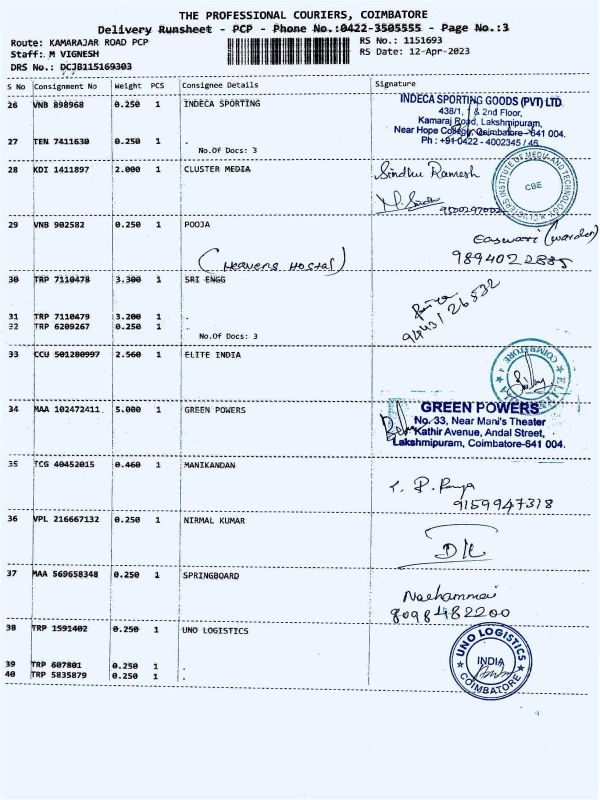 THE PROFESSIONAL COURIERS, COIMBATORE
Delivery Runsheet - PCP - Phone No.:0422-3505555 - Page No.:3
Route: KAMARAJAR ROAD PCP
Staff: M VIGNESH
DRS No.: DCJB115169303
RS No.: 1151693
RS Date: 12-Apr-2023
S No Consignment No Weight PCS Consignee Details Signature
26 VNB 898968 0.250 1 INDECA SPORTING
INDECA SPORTING GOODS (PVT) LTD.
438/1, & 2nd Floor,
Kamaraj Road, Lakshmipuram,
Near Hope College, Coimbatore-641 004.
Ph : +91-0422 - 4002345 / 46
27 TEN 7411630 0.250 1 .
No.Of Docs: 3
28 KDI 1411897 2.000 1 CLUSTER MEDIA
Sindhu Ramesh
CBE
29 VNB 902582 0.250 1 POOJA
(Heavens Hostal)
Easwari (warden)
9894022885
30 TRP 7110478 3.300 1 SRI ENGG
31 TRP 7110479 3.200 1 .
32 TRP 6209267 0.250 1 .
No.Of Docs: 3
9443126532
33 CCU 501280997 2.560 1 ELITE INDIA
34 MAA 102472411 5.000 1 GREEN POWERS
GREEN POWERS
No. 33, Near Mani's Theater
Kathir Avenue, Andal Street,
Lakshmipuram, Coimbatore-641 004.
35 TCG 40452015 0.460 1 MANIKANDAN
9159947318
36 VPL 216667132 0.250 1 NIRMAL KUMAR
37 MAA 569658348 0.250 1 SPRINGBOARD
Nachammai
8098482200
38 TRP 1591402 0.250 1 UNO LOGISTICS
UNO LOGISTICS
INDIA
COIMBATORE
39 TRP 607801 0.250 1 .
40 TRP 5835879 0.250 1 .